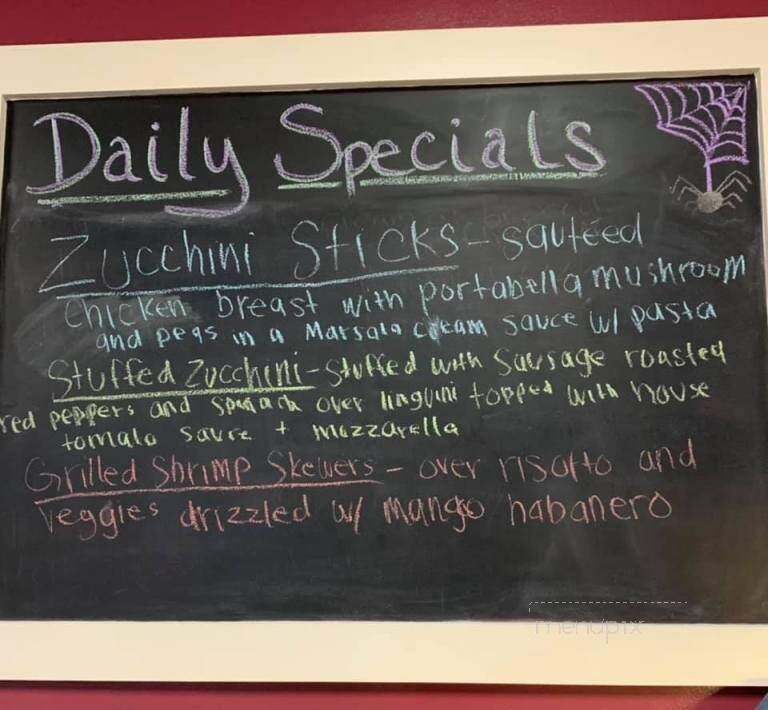 Daily Specials
Zucchini Sticks - sautéed
chicken breast with portabella mushroom
and peas in a Marsala cream sauce w/ pasta
Stuffed Zucchini - stuffed with sausage roasted
red peppers and spinach over linguini topped with house
tomato sauce + mozzarella
Grilled Shrimp Skewers - over risotto and
veggies drizzled w/ mango habanero
menupix